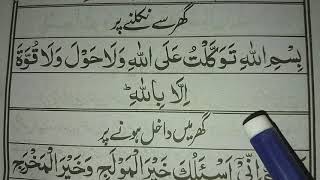 گھر سے نکلنے پر
بِسْمِ اللّٰهِ تَوَكَّلْتُ عَلَى اللّٰهِ وَلَا حَوْلَ وَلَا قُوَّةَ
اِلَّا بِاللّٰهِ ؕ
گھر میں داخل ہونے پر
اِنِّیْ اَسْئَلُكَ خَيْرَ الْمَوْلَجِ وَخَيْرَ الْمَخْرَجِ